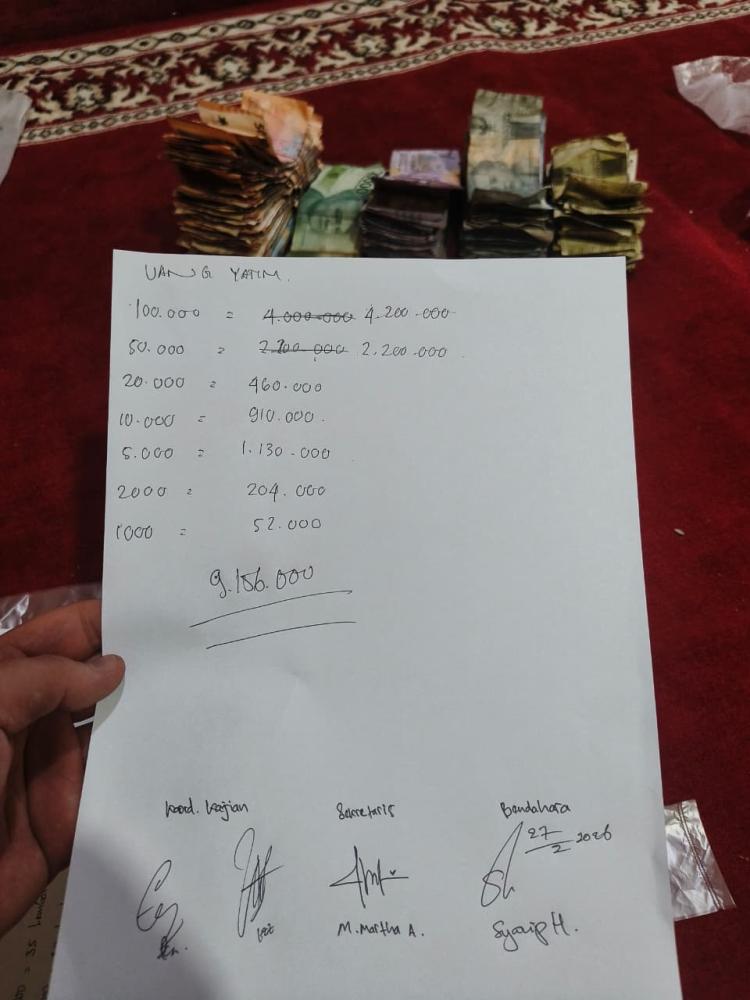 UANG YATIM.
100.000 = 4.000.000 4.200.000
50.000 = 2.200.000
20.000 = 460.000
10.000 = 910.000.
5.000 = 1.130.000
2000 = 204.000
1000 = 52.000
9.156.000
Koord. Kajian Sekretaris Bendahara
27/2 2026
M. Martha A. Syaip H.